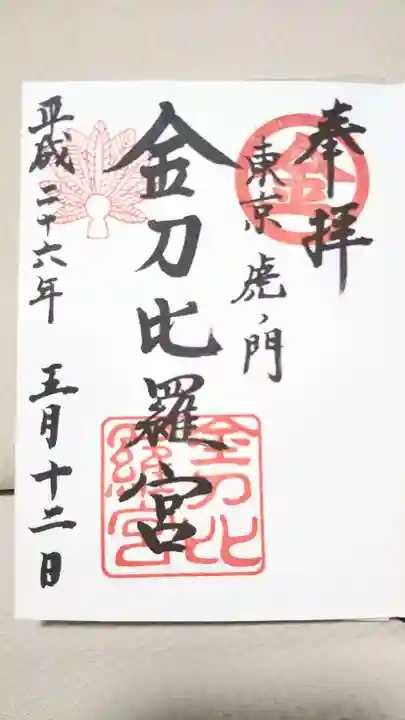 奉拝
金
東京虎ノ門
金刀比羅宮
金刀比羅宮
平成二十六年 五月十二日